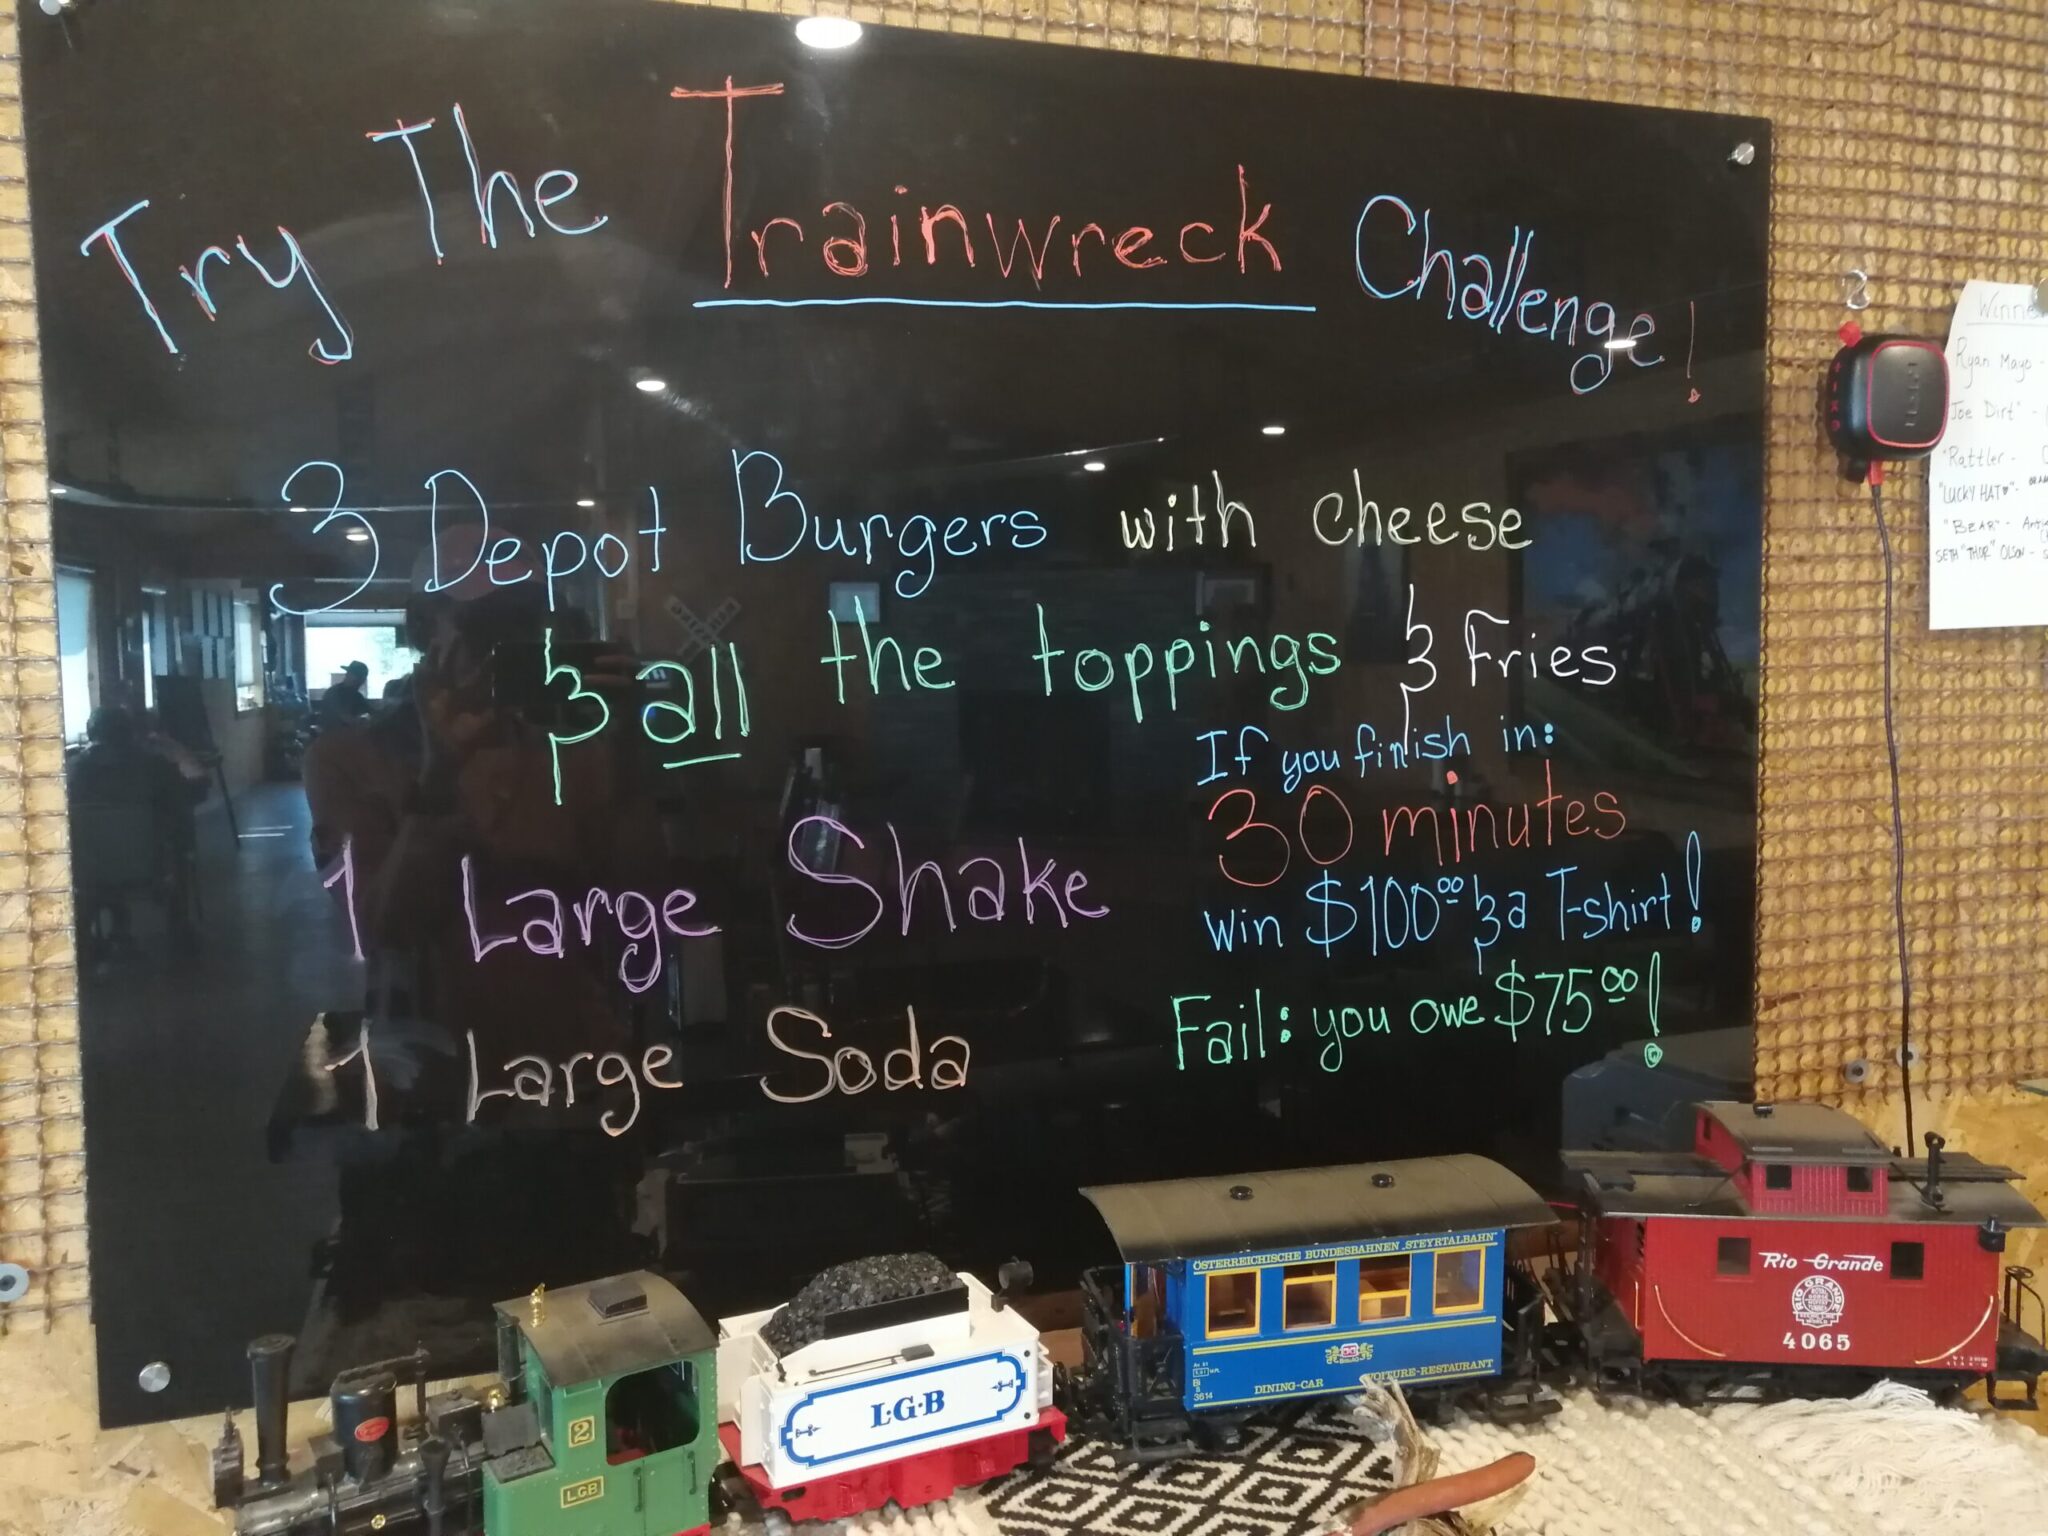 Try The Trainwreck Challenge!
3 Depot Burgers with cheese
& all the toppings & Fries
1 Large Shake
1 Large Soda
If you finish in:
30 minutes
win $100.00 & a T-shirt!
Fail: you owe $75.00!
Ryan Mayo -
Joe Dirt" -
"Rattler -
"LUCKY HAT" -
"BEAR" -
SETH "THOR" OLSON -
2
LGB
L·G·B
ÖSTERREICHISCHE BUNDESBAHNEN „STEYRTALBAHN"
3614
DINING-CAR VOITURE-RESTAURANT
Rio Grande
RIO GRANDE
4065